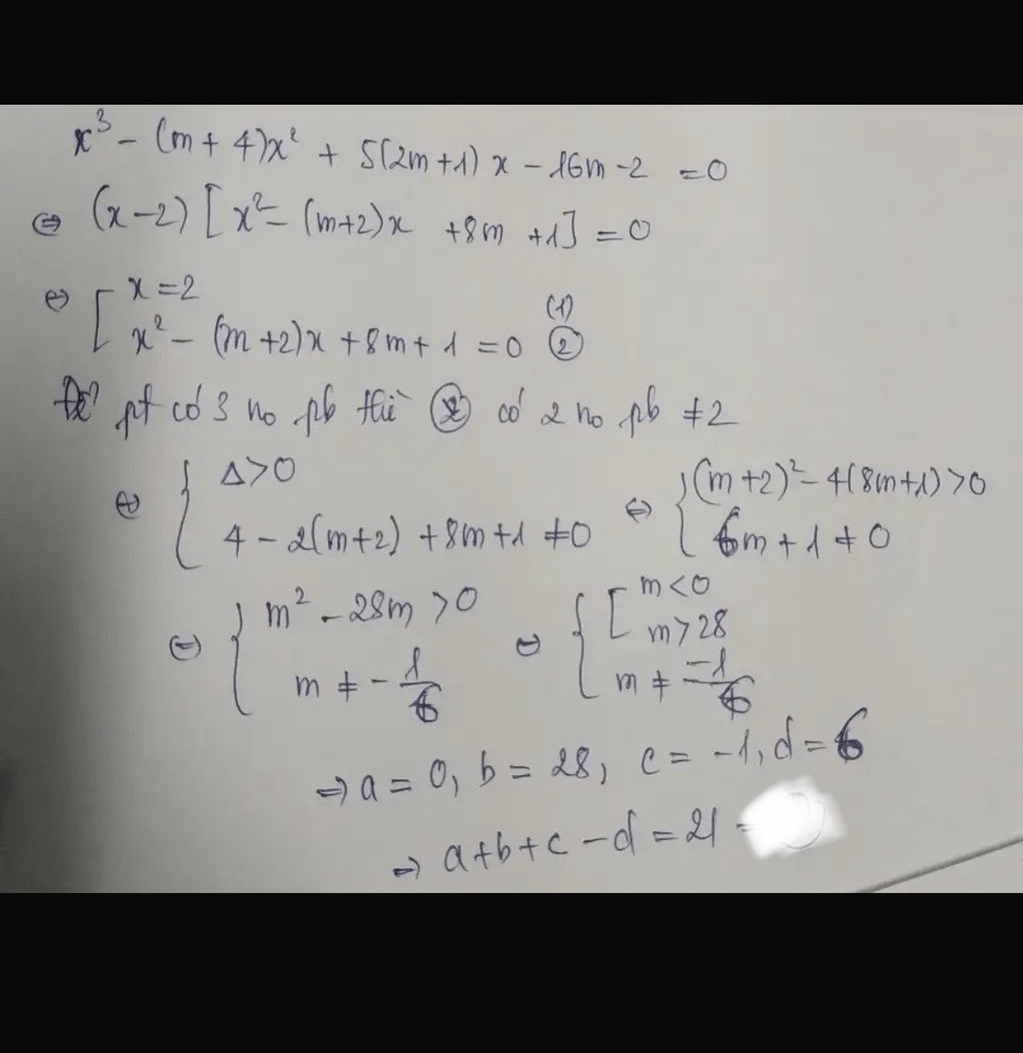 x³ - (m + 4)x² + 5(2m+1) x - 16m - 2 = 0
⇔ (x-2) [x² - (m+2)x + 8m + 1] = 0
⇔ [ x = 2 (1)
x² - (m+2)x + 8m + 1 = 0 ②
Để pt có 3 no pb thì ② có 2 no pb ≠ 2
⇔ { Δ > 0 ⇔ { (m+2)² - 4(8m+1) > 0
4 - 2(m+2) + 8m + 1 ≠ 0 6m + 1 ≠ 0
⇔ { m² - 28m > 0 ⇔ { [ m < 0
m > 28
m ≠ -1/6 m ≠ -1/6
⇒ a = 0, b = 28, c = -1, d = 6
⇒ a + b + c - d = 21